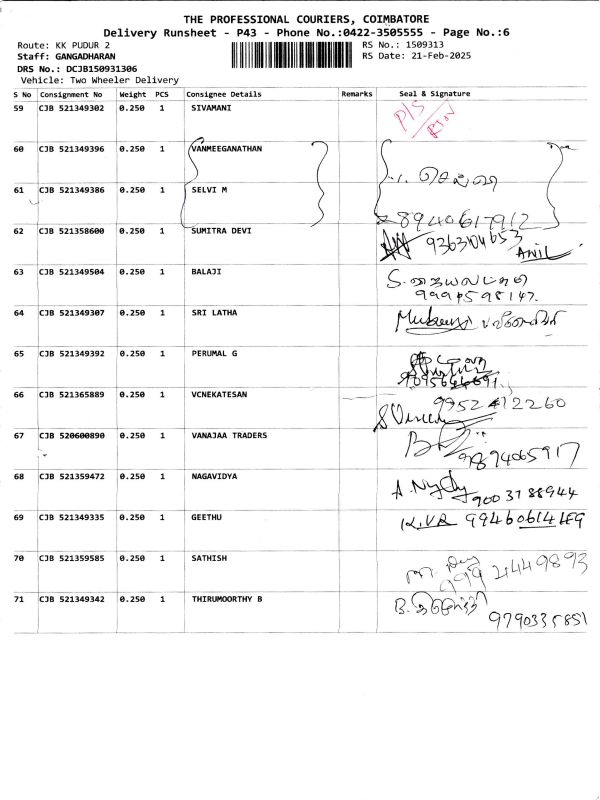 THE PROFESSIONAL COURIERS, COIMBATORE
Delivery Runsheet - P43 - Phone No.:0422-3505555 - Page No.:6
Route: KK PUDUR 2 RS No.: 1509313
Staff: GANGADHARAN RS Date: 21-Feb-2025
DRS No.: DCJB150931306
Vehicle: Two Wheeler Delivery
S No Consignment No Weight PCS Consignee Details Remarks Seal & Signature
59 CJB 521349302 0.250 1 SIVAMANI P/S
60 CJB 521349396 0.250 1 VANMEEGANATHAN
61 CJB 521349386 0.250 1 SELVI M
8940617912
62 CJB 521358600 0.250 1 SUMITRA DEVI
ANIL
63 CJB 521349504 0.250 1 BALAJI
64 CJB 521349307 0.250 1 SRI LATHA
65 CJB 521349392 0.250 1 PERUMAL G
66 CJB 521365889 0.250 1 VCNEKATESAN 9952412260
67 CJB 520600890 0.250 1 VANAJAA TRADERS
9894065917
68 CJB 521359472 0.250 1 NAGAVIDYA
9003788944
69 CJB 521349335 0.250 1 GEETHU K.VR
70 CJB 521359585 0.250 1 SATHISH
71 CJB 521349342 0.250 1 THIRUMOORTHY B
9790335851